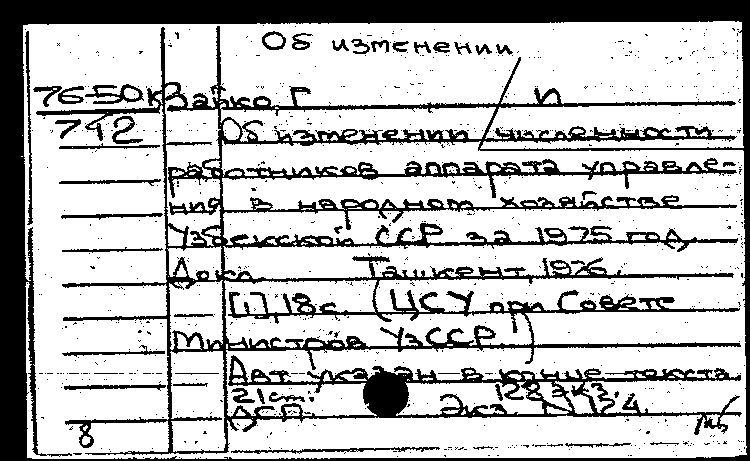 Об изменении
76-50к Зайко, Г И
742 Об изменении численности
работников аппарата управле-
ния в народном хозяйстве
Узбекской ССР за 1975 год.
Докл. Ташкент, 1976.
[1], 18 с. (ЦСУ при Совете
Министров УзССР)
Авт. указан в конце текста.
21 cm. 128 экз.
ДСП. Экз. N 124.
8